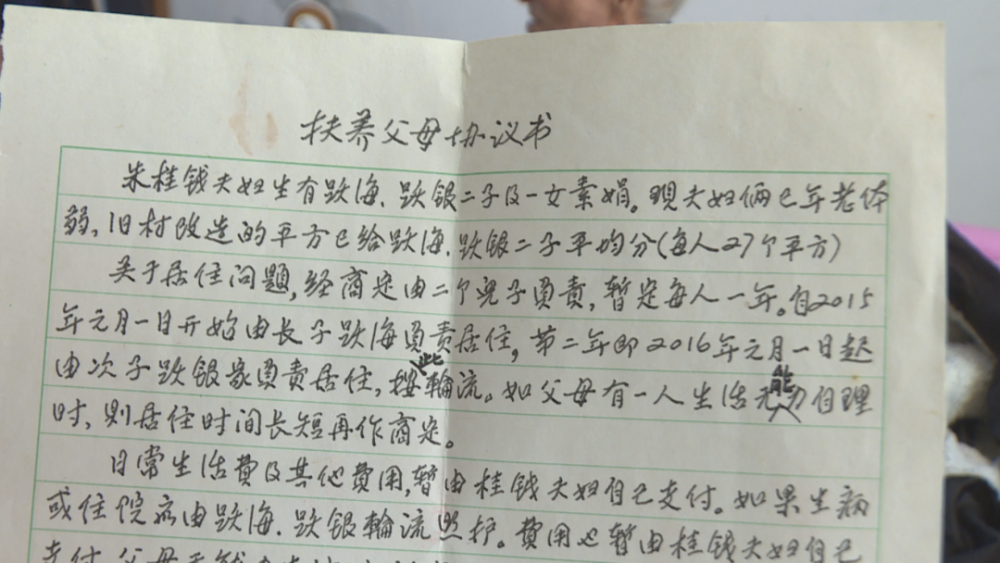 扶养父母协议书
朱桂钱夫妇生有跃海、跃银二子及一女素娟。现夫妇俩已年老体
弱,旧村改造的平方已给跃海、跃银二子平均分(每人27个平方)
关于居住问题,经商定由二个儿子负责,暂定每人一年。自2015
年元月一日开始由长子跃海负责居住,第二年即2016年元月一日起
由次子跃银家负责居住,按此輪流。如父母有一人生活无能力自理
时,则居住时间长短再作商定。
日常生活费及其他费用,暂由桂钱夫妇自己支付。如果生病
或住院应由跃海、跃银輪流照护。费用也暂由桂钱夫妇自己
支付 父母